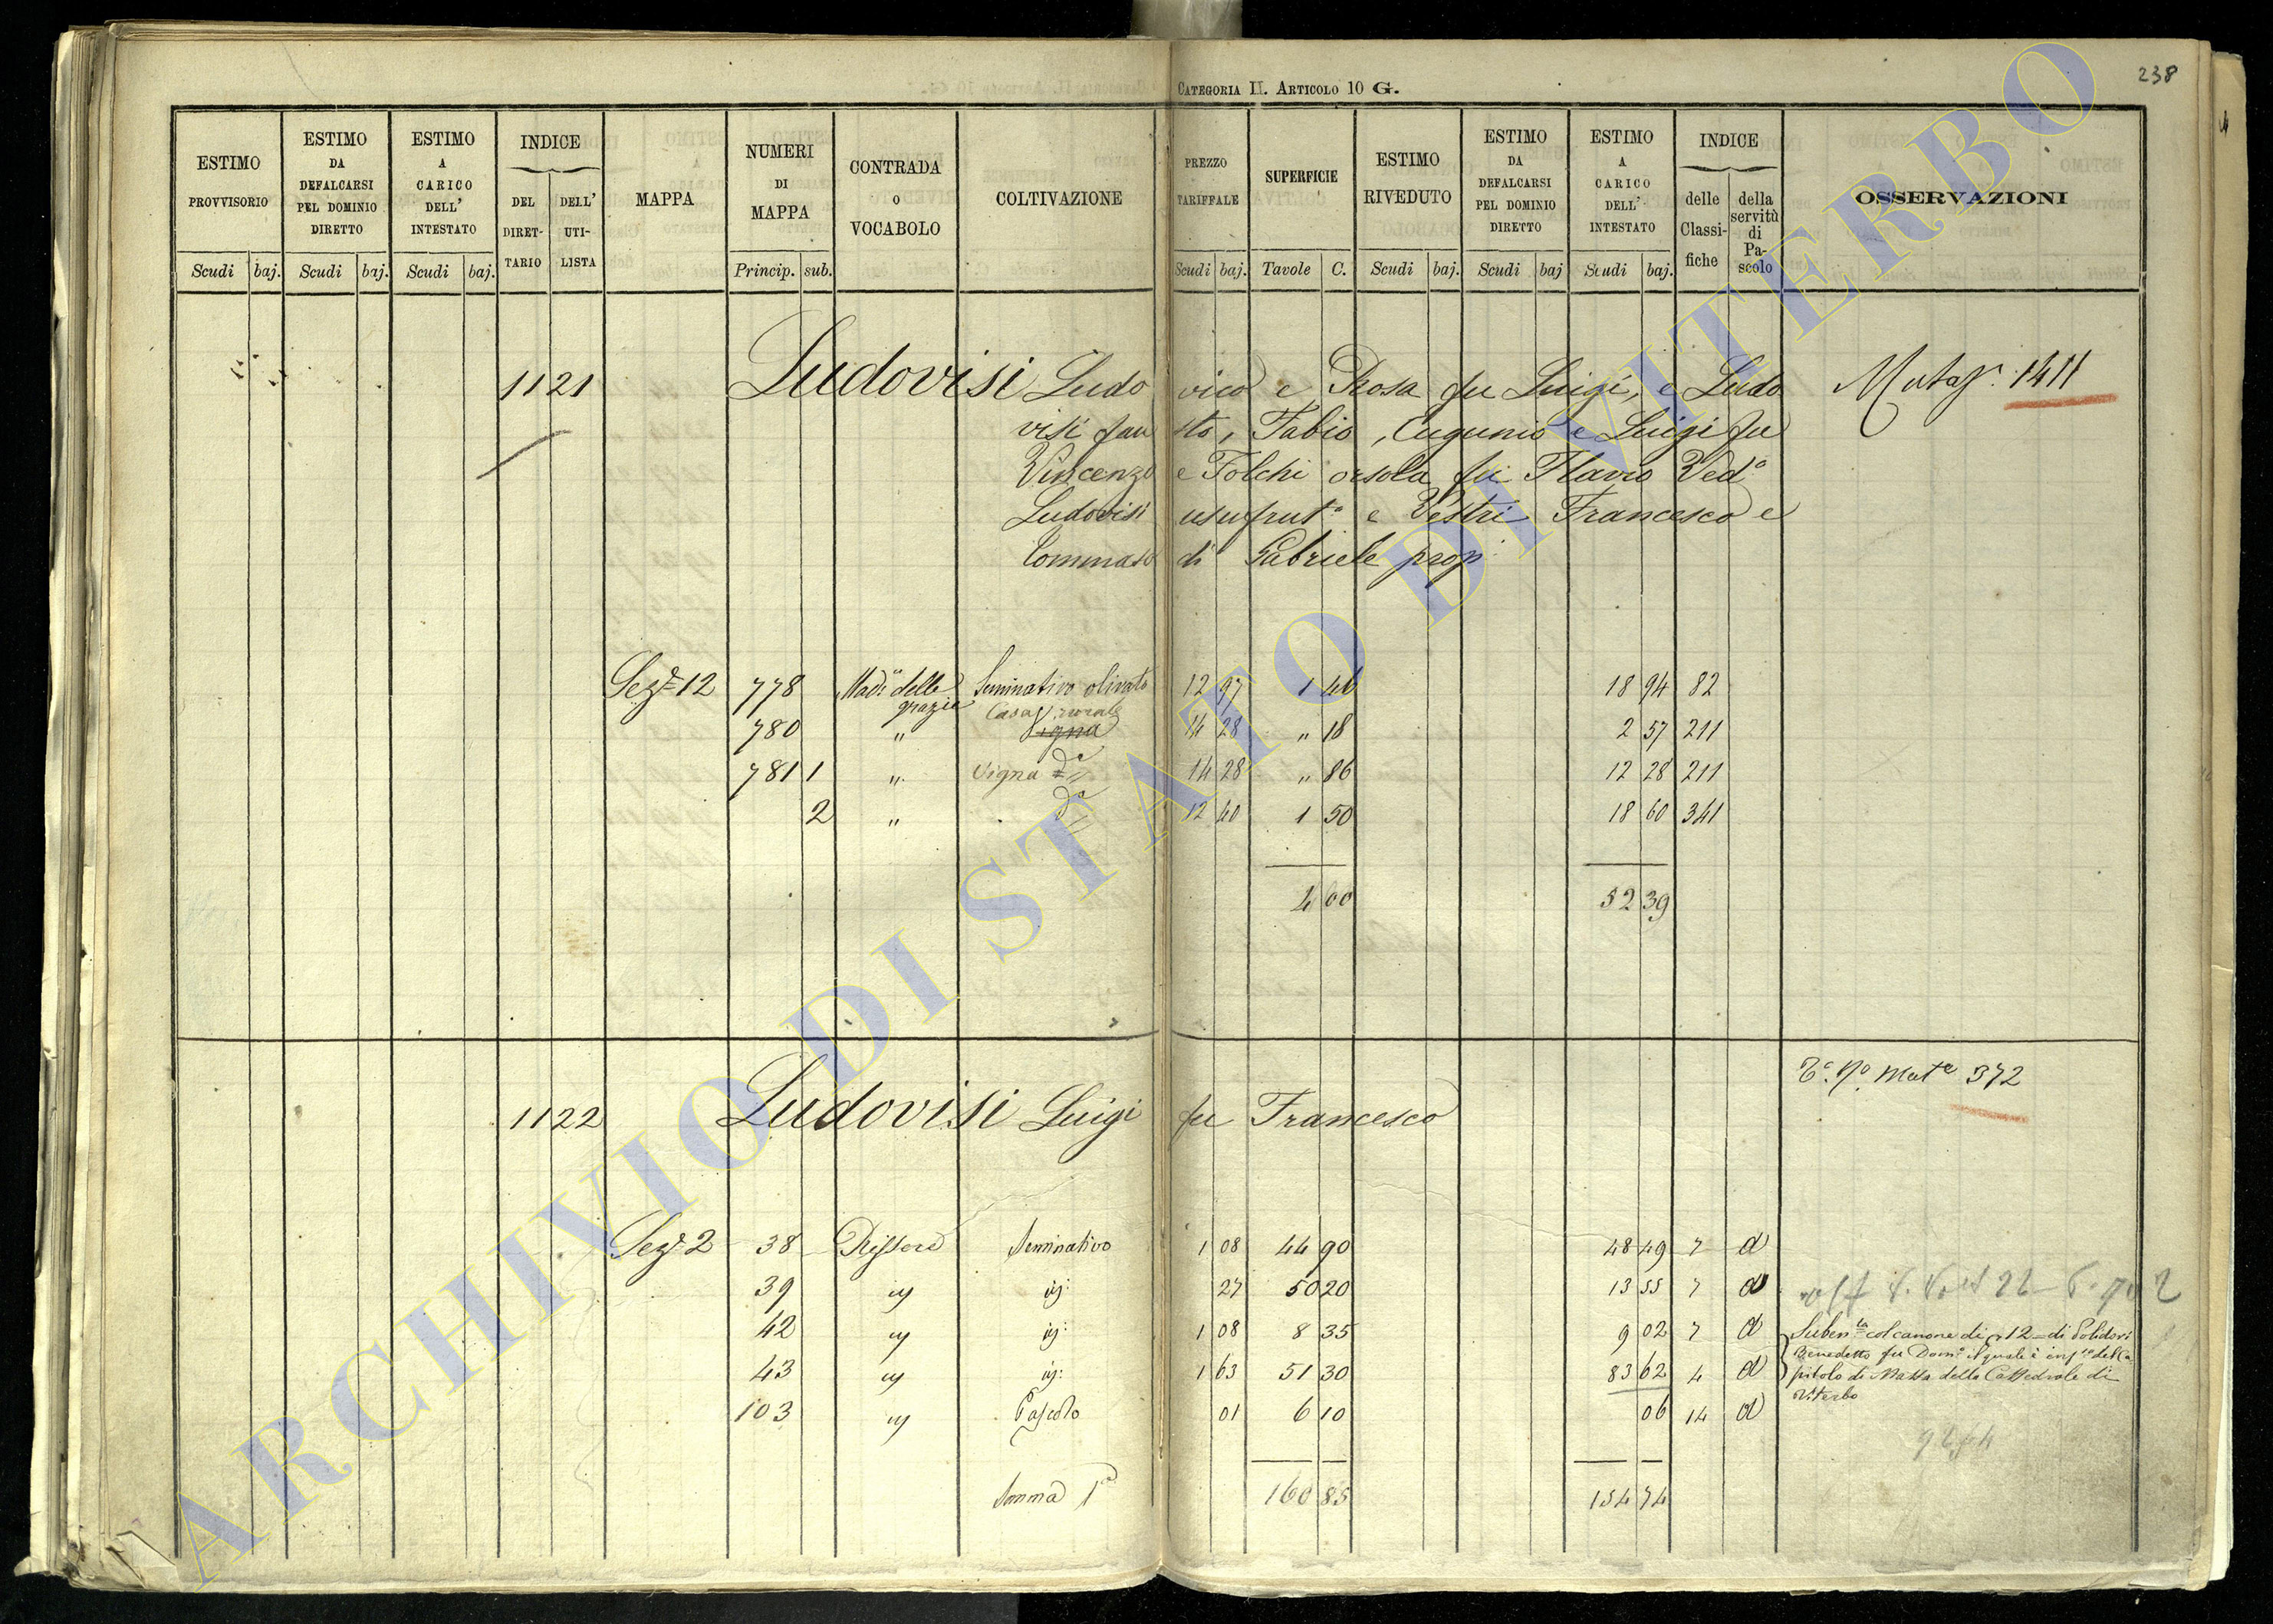 238
CATEGORIA II. ARTICOLO 10 G.
ESTIMO PROVVISORIO Scudi baj.
ESTIMO DA DEFALCARSI PEL DOMINIO DIRETTO Scudi baj.
ESTIMO A CARICO DELL' INTESTATO Scudi baj.
INDICE DEL DIRET- TARIO DELL' UTI- LISTA
MAPPA
NUMERI DI MAPPA Princip. sub.
CONTRADA O VOCABOLO
COLTIVAZIONE
PREZZO TARIFFALE Scudi baj.
SUPERFICIE Tavole C.
ESTIMO RIVEDUTO Scudi baj.
ESTIMO DA DEFALCARSI PEL DOMINIO DIRETTO Scudi baj
ESTIMO A CARICO DELL' INTESTATO Scudi baj.
INDICE delle Classi- fiche della servitù di Pa- scolo
OSSERVAZIONI
1121 Ludovisi Ludo vico e Rosa fu Luigi, e Ludo
visi Fau sto, Fabio, Eugenio e Luigi fu
Vincenzo e Folchi Orsola fu Flavio Ved.ª
Ludovisi usufrut.ª e Vestri Francesco e
Tommaso di Gabriele prop.
1411
Sez.e 12 778 Mad.a delle grazie Seminativo olivato 12 97 1 46 18 94 82
780 " Casa rurale 14 28 " 18 2 57 211
781 1 " Vigna 14 28 " 86 12 28 211
2 " dª 12 40 1 50 18 60 341
4 00 52 39
Mat.e 372
1122 Ludovisi Luigi fu Francesco
Sez.e 2 38 Seminativo 1 08 44 90 48 49 7 d
39 27 50 20 13 55 7 d
42 1 08 8 35 9 02 7 d
43 1 63 51 30 83 62 4 d
103 Pascolo 01 6 10 06 14 d
col canone di 12 di Polidori
Benedetto fu Dom.º
pitolo di Massa della Cattedrale di
Viterbo
Somma 1ª 160 85 154 74
ARCHIVIO DI STATO DI VITERBO